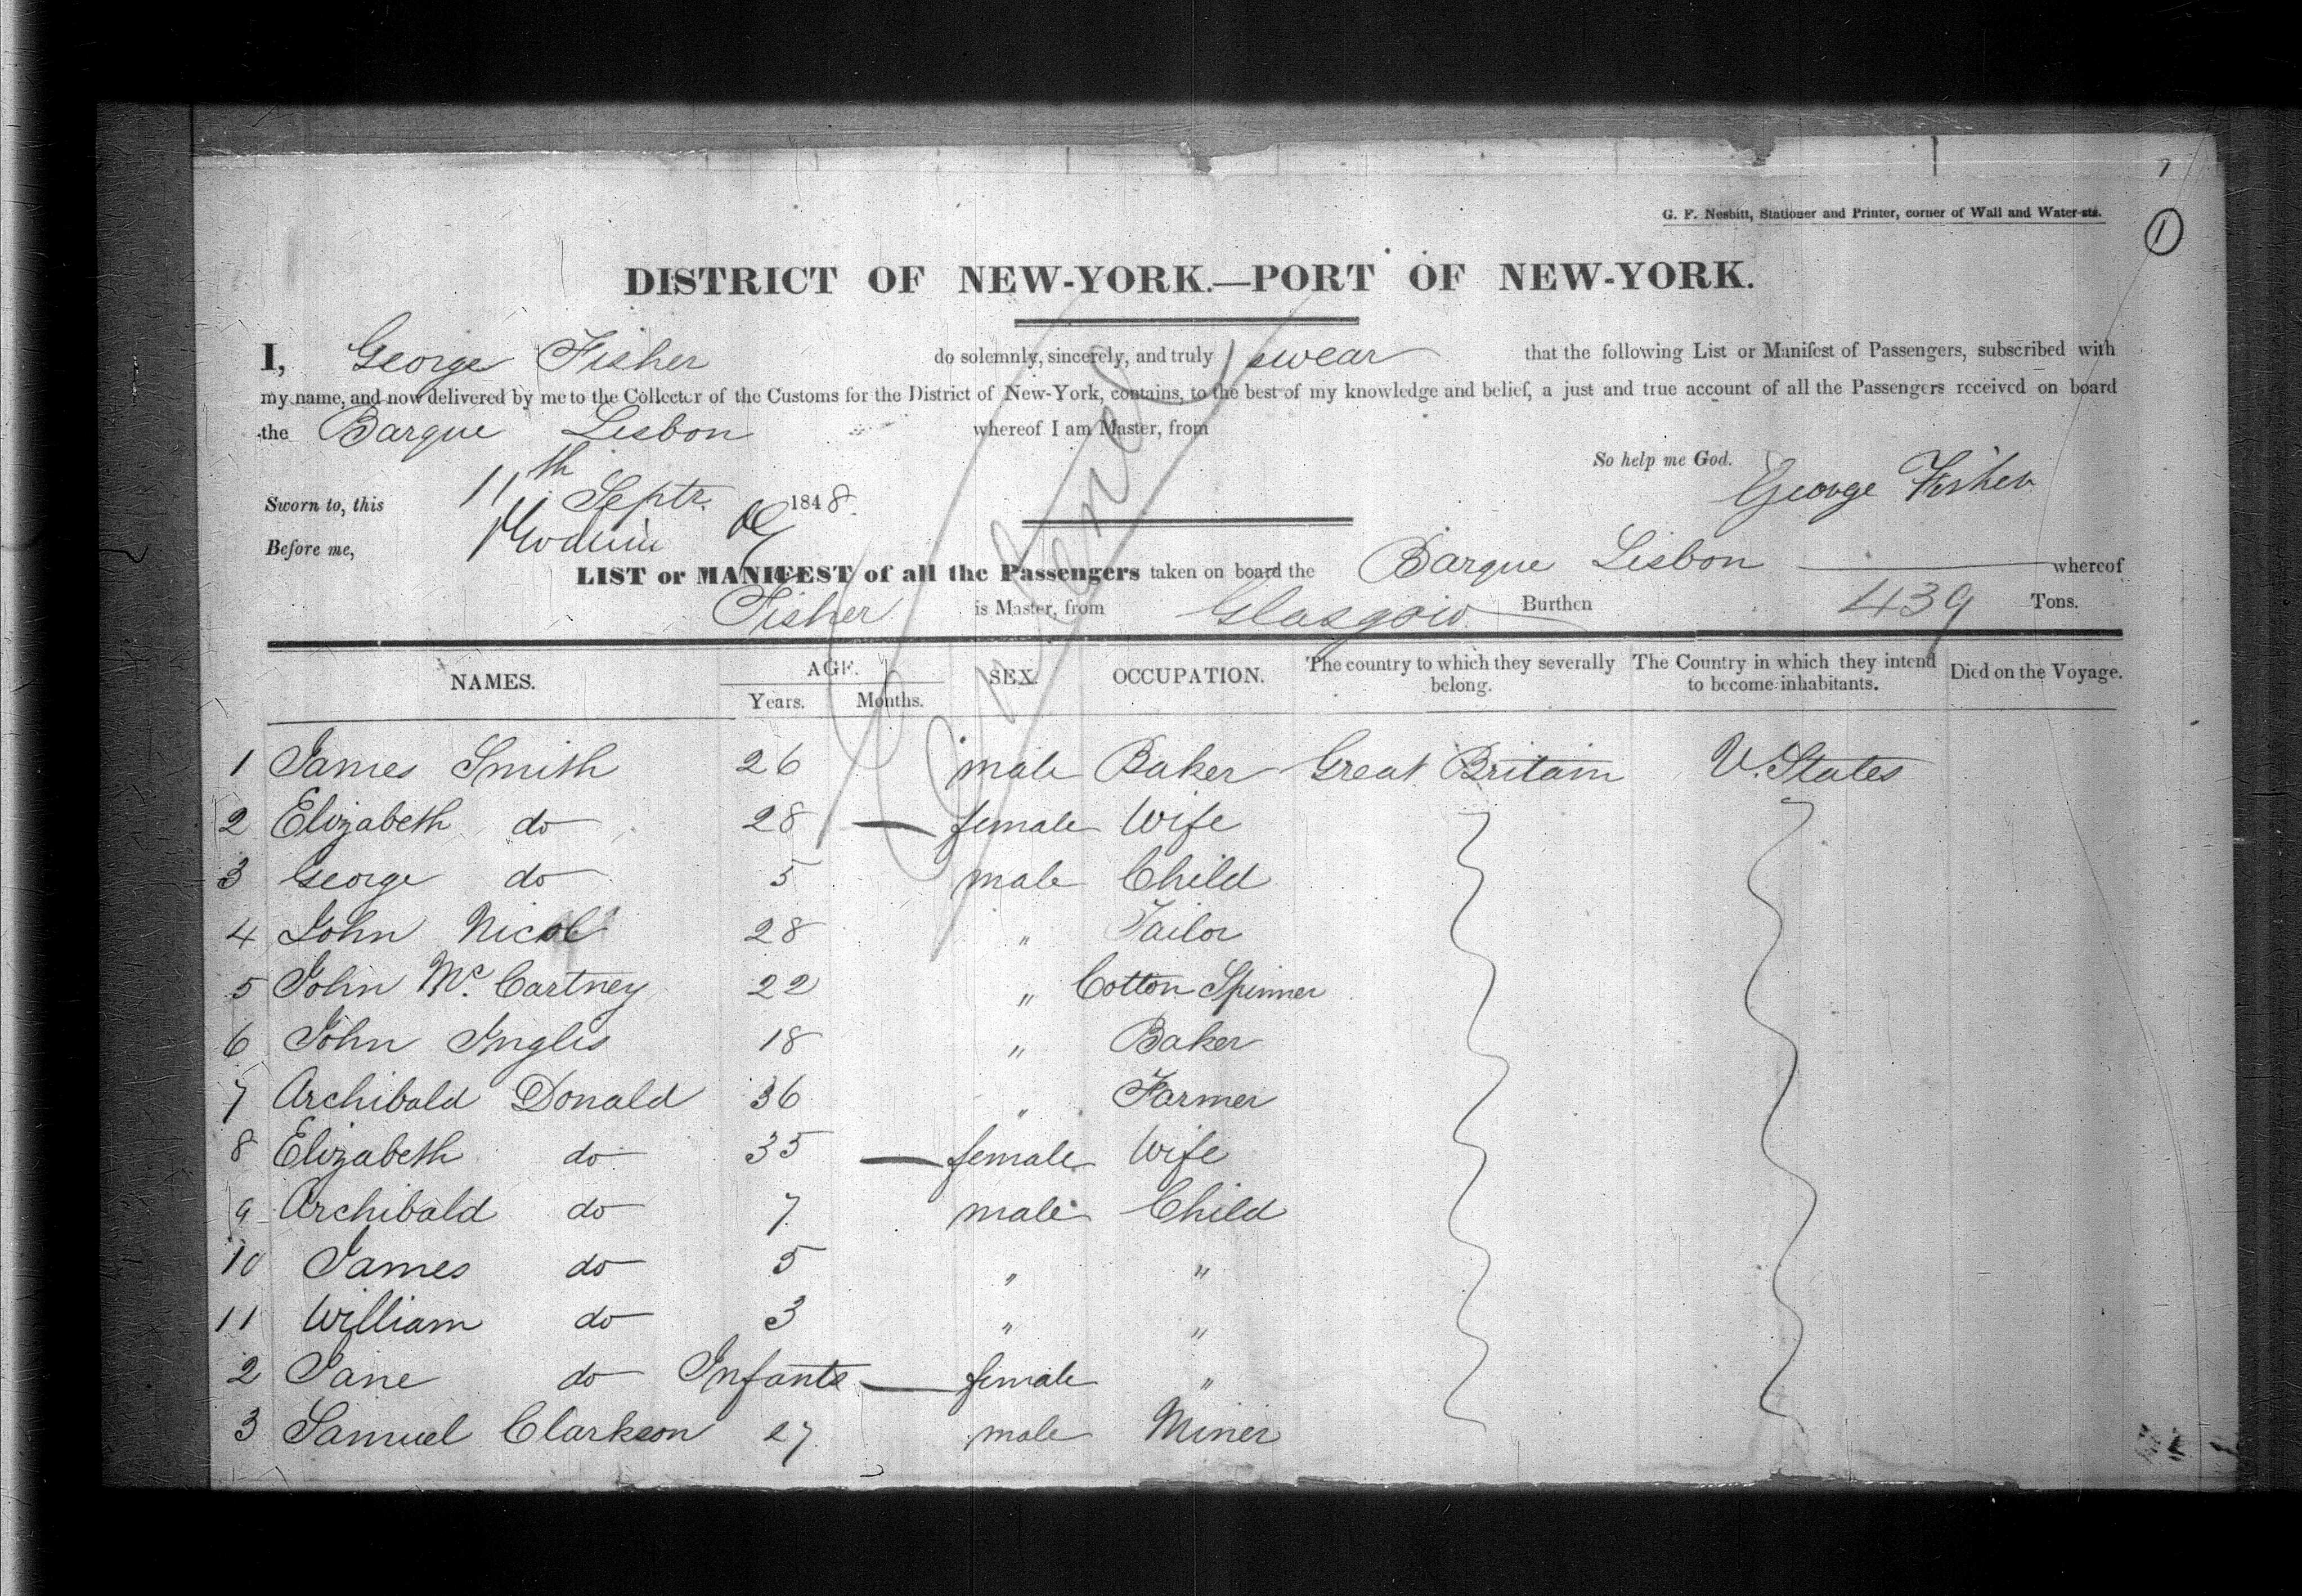 7
G. F. Nesbitt, Stationer and Printer, corner of Wall and Water-sts.
1
DISTRICT OF NEW-YORK.—PORT OF NEW-YORK.
I, George Fisher do solemnly, sincerely, and truly swear that the following List or Manifest of Passengers, subscribed with
my name, and now delivered by me to the Collector of the Customs for the District of New-York, contains, to the best of my knowledge and belief, a just and true account of all the Passengers received on board
the Barque Lisbon whereof I am Master, from
So help me God.
George Fisher
Sworn to, this 11th Septr. 1848.
Before me,
LIST or MANIFEST of all the Passengers taken on board the Barque Lisbon whereof
Fisher is Master, from Glasgow Burthen 439 Tons.
NAMES. AGE. Years. Months. SEX. OCCUPATION. The country to which they severally belong. The Country in which they intend to become inhabitants. Died on the Voyage.
1 James Smith 26 male Baker Great Britain U. States
2 Elizabeth do 28 — female Wife
3 George do 5 male Child
4 John Nicol 28 " Tailor
5 John McCartney 22 " Cotton Spinner
6 John Inglis 18 " Baker
7 Archibald Donald 36 " Farmer
8 Elizabeth do 35 — female Wife
9 Archibald do 7 male Child
10 James do 5 " "
11 William do 3 " "
2 Jane do Infants — female "
3 Samuel Clarkson 27 male Miner